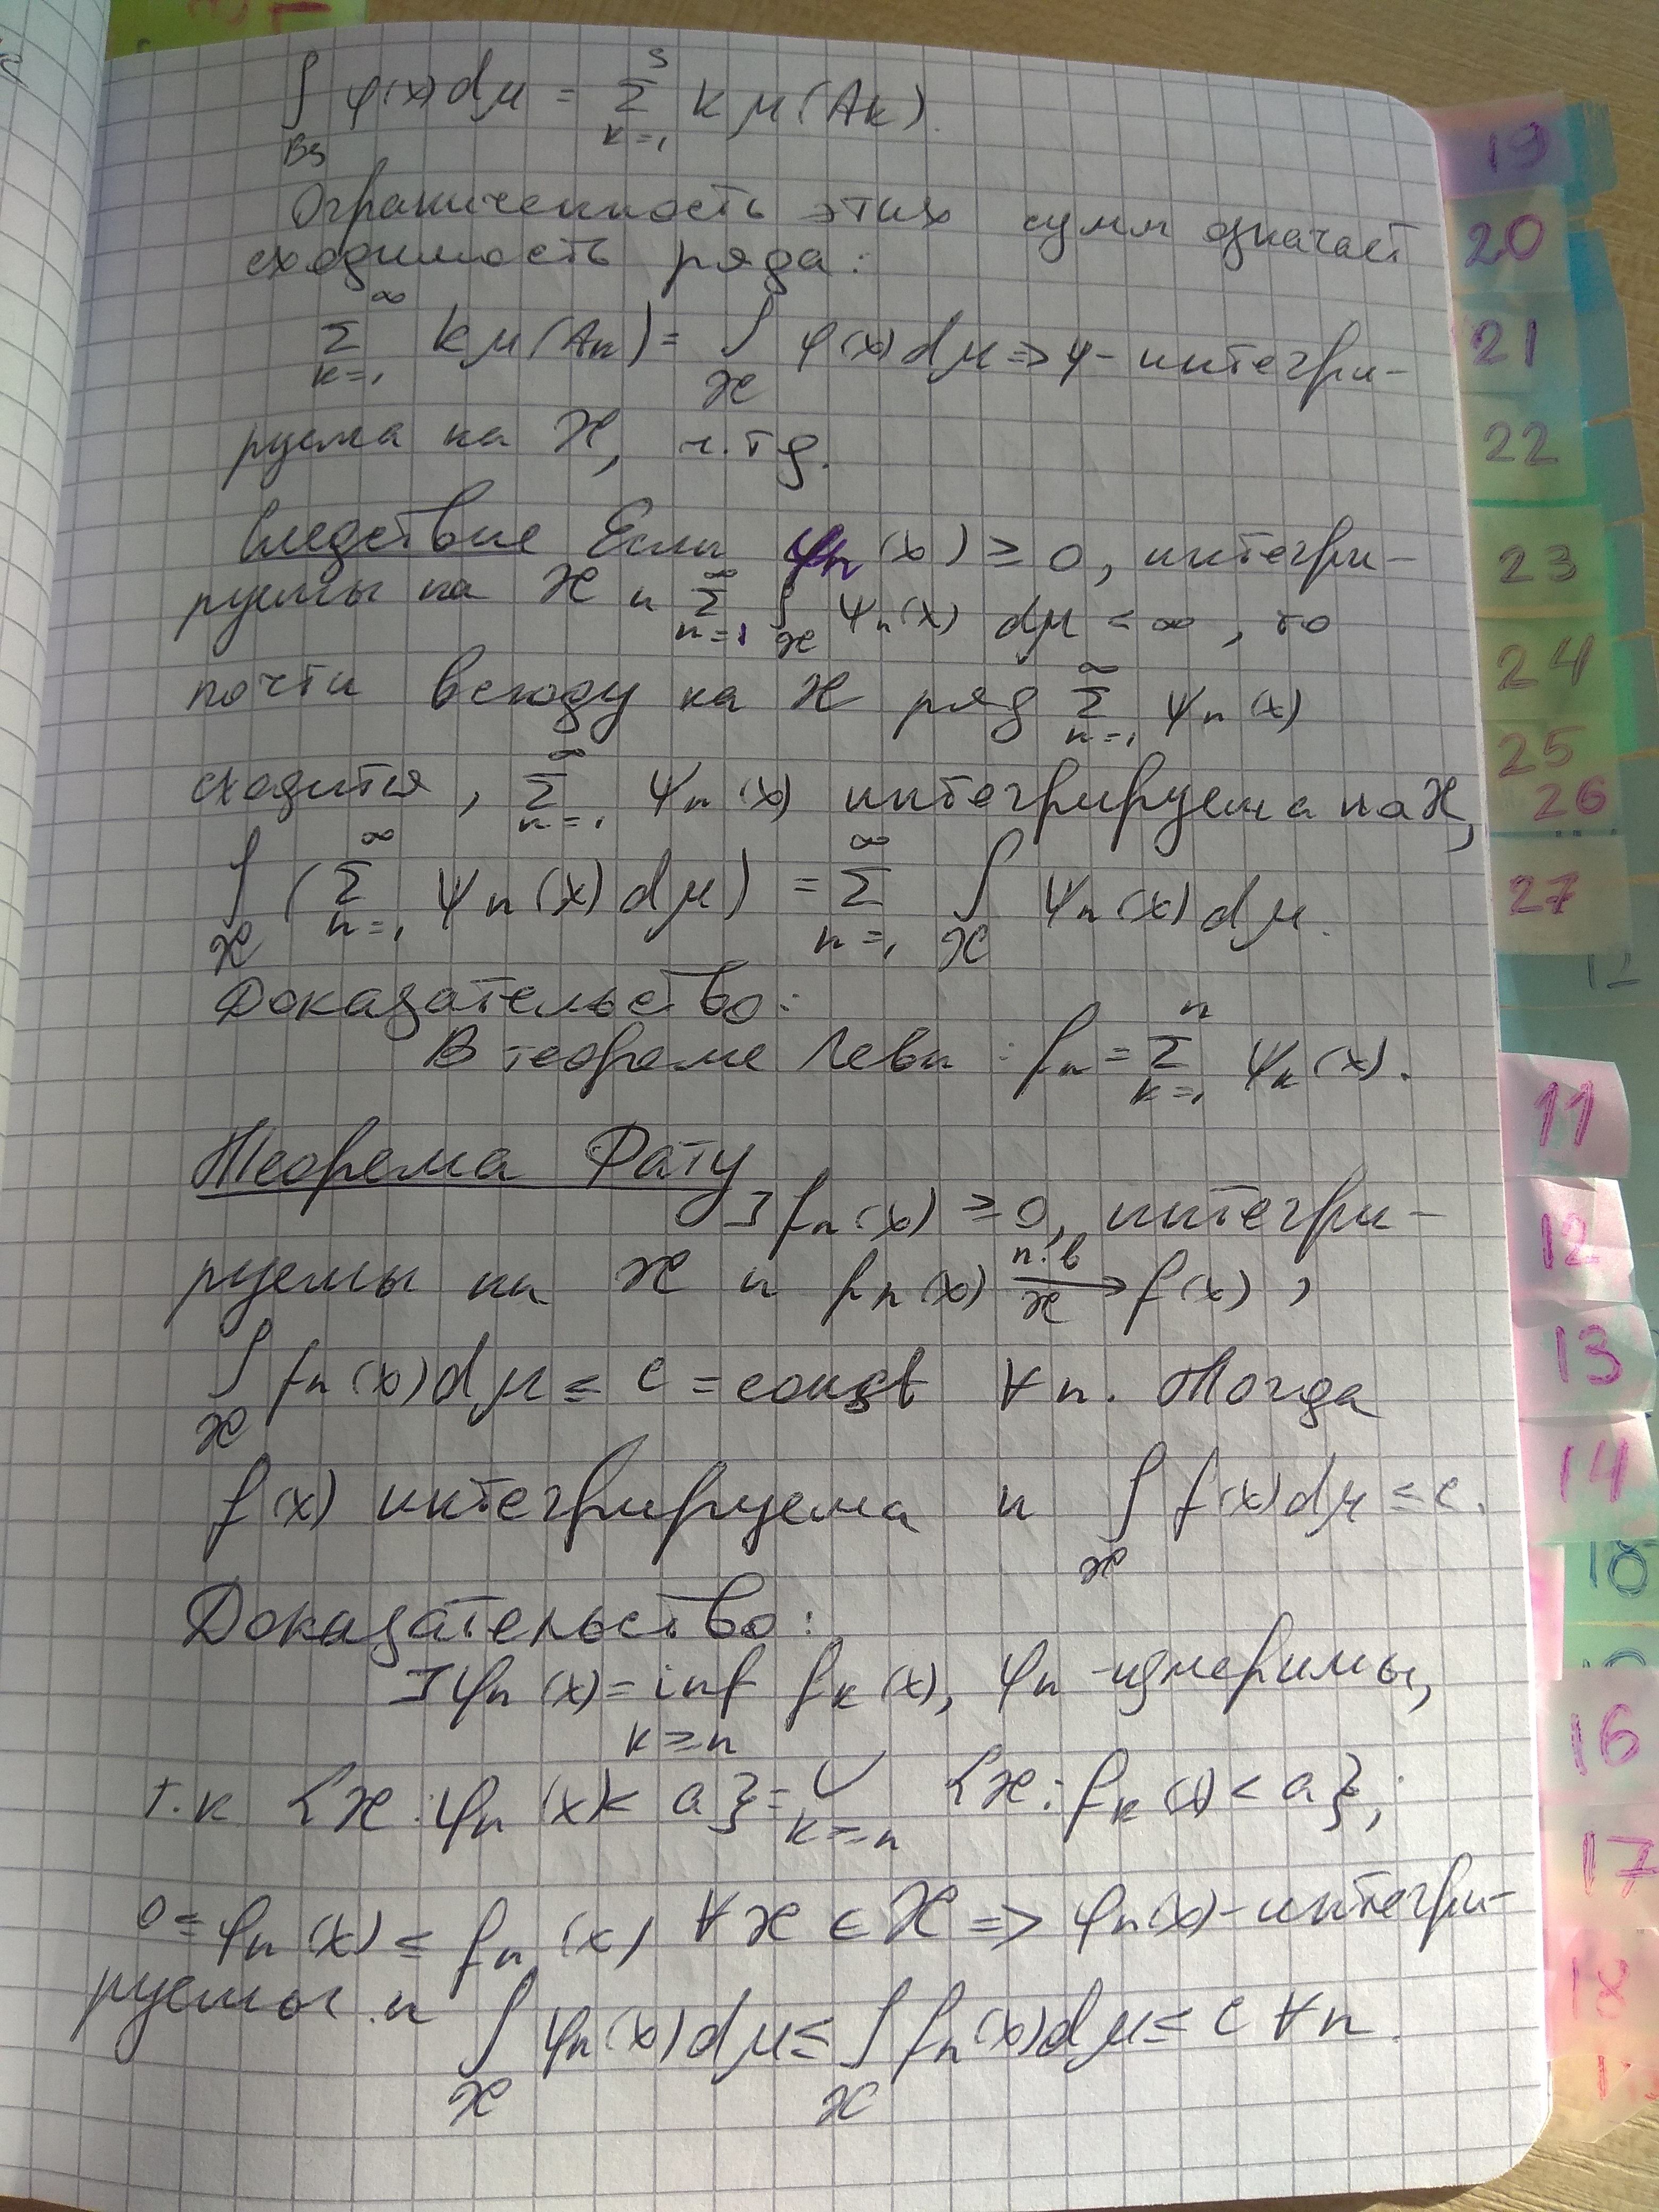 ∫_{B_s} φ(x)dμ = Σ_{k=1}^{s} k μ(A_k).
Ограниченность этих сумм означает
сходимость ряда:
Σ_{k=1}^{∞} k μ(A_k) = ∫_X φ(x)dμ ⇒ φ - интегри-
руема на X, ч.т.д.
Следствие Если ψ_n(x) ≥ 0, интегри-
руемы на X и Σ_{n=1}^{∞} ∫_X ψ_n(x) dμ < ∞, то
почти всюду на X ряд Σ_{n=1}^{∞} ψ_n(x)
сходится, Σ_{n=1}^{∞} ψ_n(x) интегрируема на X,
∫_X (Σ_{n=1}^{∞} ψ_n(x)dμ) = Σ_{n=1}^{∞} ∫_X ψ_n(x)dμ.
Доказательство:
В теореме Леви: f_n = Σ_{k=1}^{n} ψ_k(x).
Теорема Фату
∃ f_n(x) ≥ 0, интегри-
руемы на X и f_n(x) \xrightarrow[X]{п.в} f(x),
∫_X f_n(x)dμ ≤ c = const ∀n. Тогда
f(x) интегрируема и ∫_X f(x)dμ ≤ c.
Доказательство:
∃ φ_n(x) = inf_{k≥n} f_k(x), φ_n - измеримы,
т.к {x: φ_n(x) < a} = ∪_{k≥n} {x: f_k(x) < a};
0 ≤ φ_n(x) ≤ f_n(x) ∀x ∈ X ⇒ φ_n(x) - интегри-
руемы и ∫_X φ_n(x)dμ ≤ ∫_X f_n(x)dμ ≤ c ∀n.
19
20
21
22
23
24
25
26
27
12
11
12
13
14
18
16
17
18